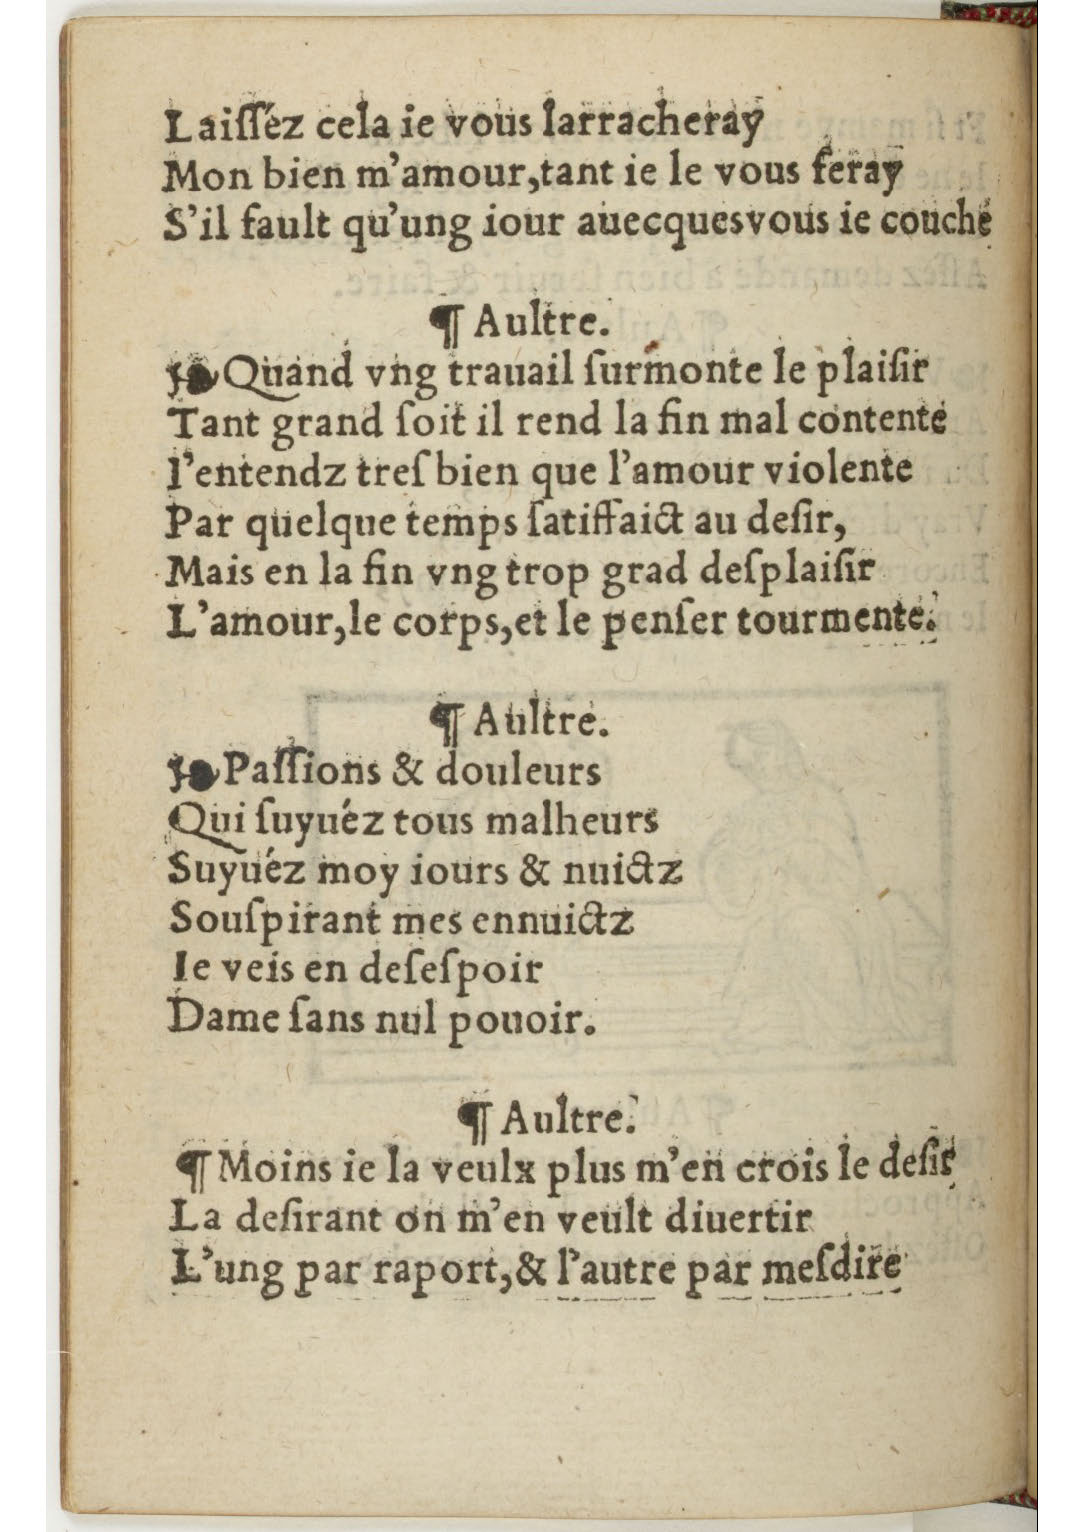 Laiſſéz cela ie vous larracheray
Mon bien m'amour,tant ie le vous feray
S'il fault qu'ung iour auecquesvous ie couche
¶ Aultre.
❧Quand vng trauail ſurmonte le plaiſir
Tant grand ſoit il rend la fin mal contente
I'entendz treſbien que l'amour violente
Par quelque temps ſatiffaict au deſir,
Mais en la fin vng trop grad deſplaiſir
L'amour,le corps,et le penſer tourmente.
¶ Aultre.
❧Paſſions & douleurs
Qui ſuyuéz tous malheurs
Suyuéz moy iours & nuictz
Souſpirant mes ennuictz
Ie veis en deſeſpoir
Dame ſans nul pouoir.
¶ Aultre.
¶ Moins ie la veulx plus m'en crois le deſir
La deſirant on m'en veult diuertir
L'ung par raport,& l'autre par meſdire